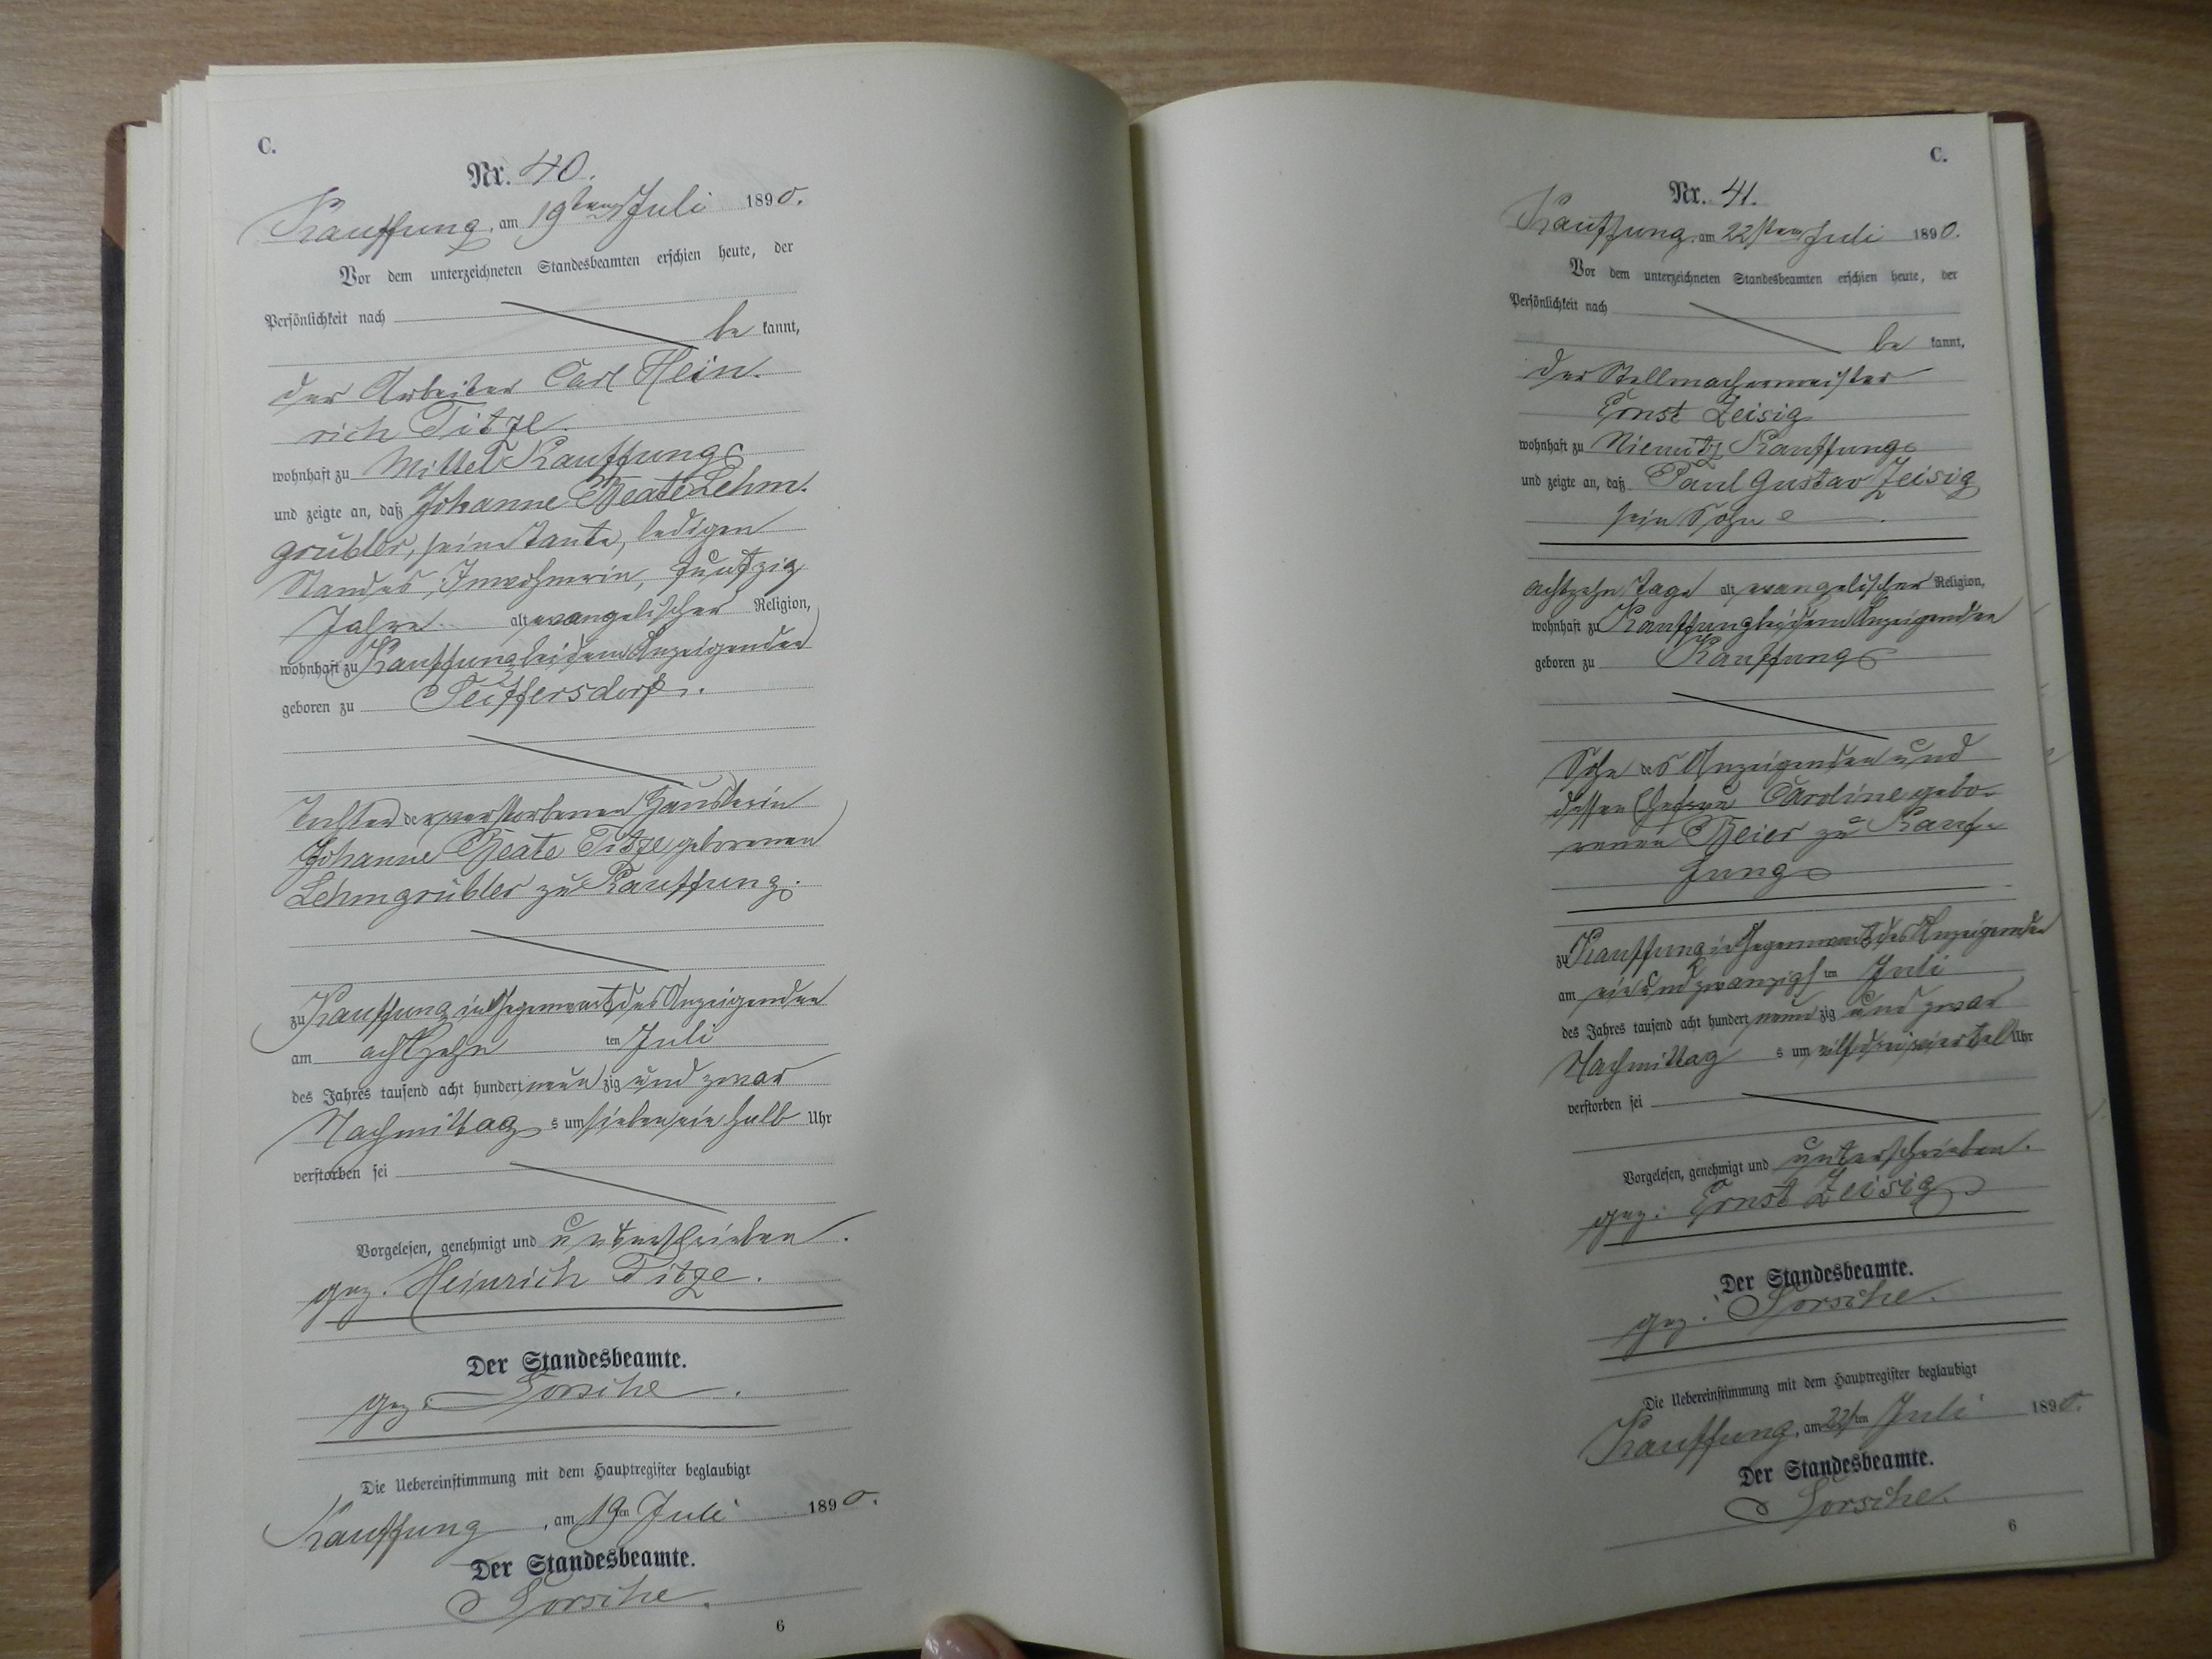 C.
Nr. 40.
Kauffung, am 19ten Juli 1890.
Vor dem unterzeichneten Standesbeamten erschien heute, der
Persönlichkeit nach
be kannt,
der Arbeiter Carl Hein-
rich Titze.
wohnhaft zu Mittel Kauffung
und zeigte an, daß Johanne Beate Lehm-
grübler, seine Tante, ledigen
Standes, Inwohnerin, funfzig
Jahre alt evangelischer Religion,
wohnhaft zu Kauffung bei dem Anzeigenden
geboren zu Seiffersdorf.
Tochter der verstorbenen Häuslerin
Johanne Beate Titze geborenen
Lehmgrübler zu Kauffung.
zu Kauffung in Gegenwart des Anzeigenden
am achtzehn ten Juli
des Jahres tausend acht hundert neun zig und zwar
Nachmittag s um sieben ein halb Uhr
verstorben sei
Vorgelesen, genehmigt und unterschrieben.
gez. Heinrich Titze.
Der Standesbeamte.
gez. Sorsche.
Die Uebereinstimmung mit dem Hauptregister beglaubigt
Kauffung, am 19ten Juli 1890.
Der Standesbeamte.
Sorsche.
6
C.
Nr. 41.
Kauffung, am 22sten Juli 1890.
Vor dem unterzeichneten Standesbeamten erschien heute, der
Persönlichkeit nach
be kannt,
der Stellmachermeister
Ernst Zeisig
wohnhaft zu Niemitz Kauffung
und zeigte an, daß Paul Gustav Zeisig
sein Sohn
achtzehn Tage alt evangelischer Religion,
wohnhaft zu Kauffung bei dem Anzeigenden
geboren zu Kauffung
Sohn des Anzeigenden und
dessen Ehefrau Caroline gebo-
renen Beier zu Kauf-
fung
zu Kauffung in Gegenwart des Anzeigenden
am ein und zwanzigs ten Juli
des Jahres tausend acht hundert neun zig und zwar
Nachmittag s um elf dreiviertel Uhr
verstorben sei
Vorgelesen, genehmigt und unterschrieben.
gez. Ernst Zeisig
Der Standesbeamte.
gez. Sorsche.
Die Uebereinstimmung mit dem Hauptregister beglaubigt
Kauffung, am 22sten Juli 1890.
Der Standesbeamte.
Sorsche.
6